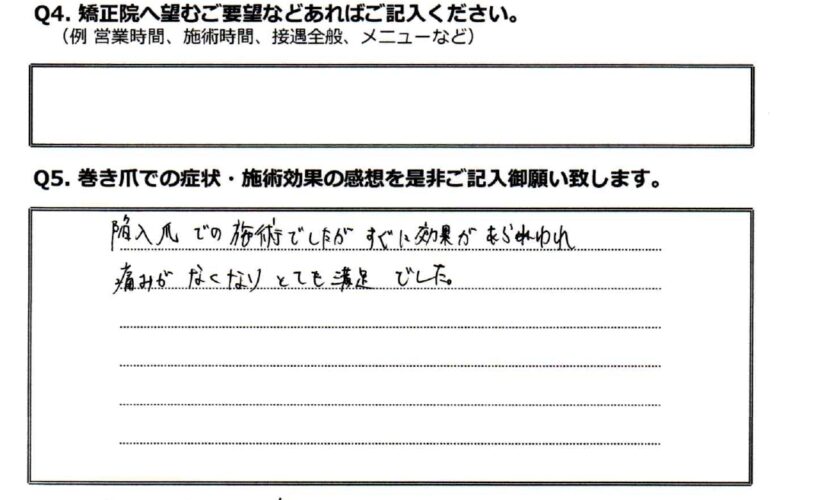 Q4. 矯正院へ望むご要望などあればご記入ください。
（例 営業時間、施術時間、接遇全般、メニューなど）
Q5. 巻き爪での症状・施術効果の感想を是非ご記入御願い致します。
陥入爪での施術でしたがすぐに効果があらわれ
痛みがなくなりとても満足でした。